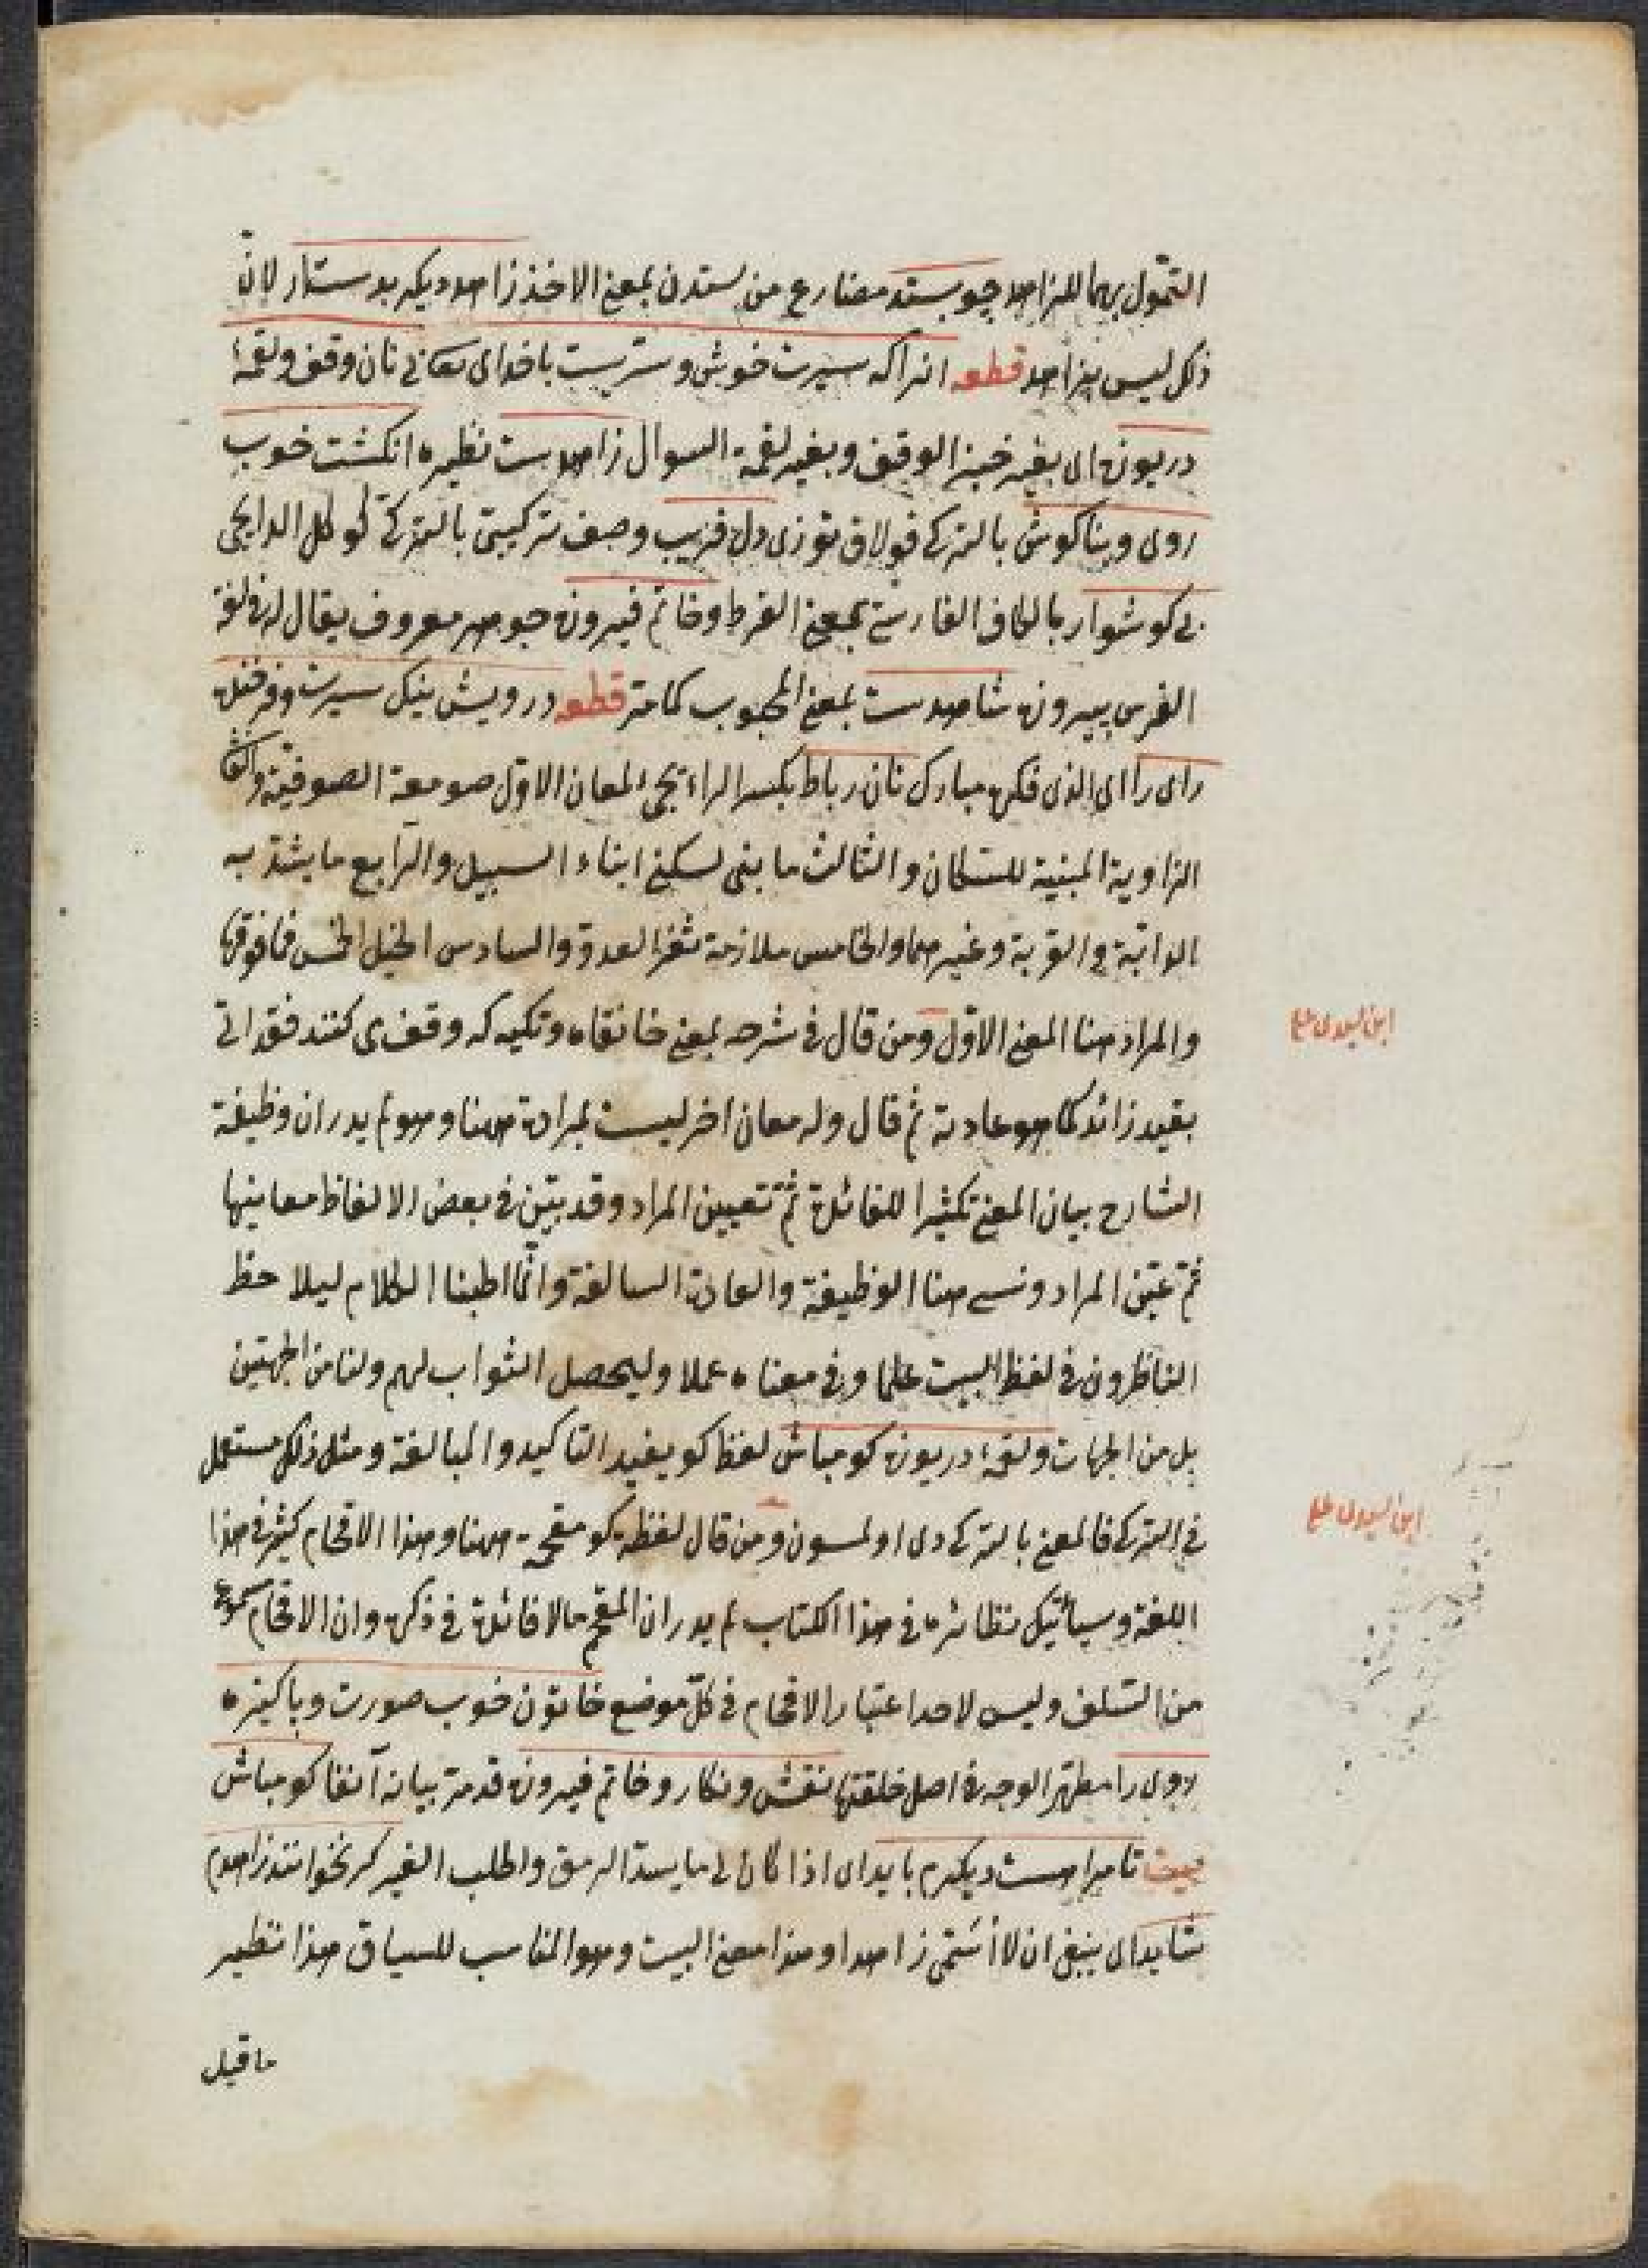 التموّل بهما للزاهد چو بستد مضارع من ستدن بمعنى الاخذ زاهد ديكر بدست ار لانّ
ذلك ليس بزاهد قطعه انرا كه سيرت خوش وسريست با خداى تعالى بى نان وقف ولقمۀ
دريوزه اى بغير خبز الوقف وبغير لقمة السوال زاهدست نظيره انكشت خوب
روى وبناكوش بالتركى قولاق توزى دل فريب وصف تركيبى بالتركى كوكل الدايجى
بى كوشوار بالكاف الفارسى بمعنى القرط وخاتم فيروزه جوهر معروف يقال له فى لغة
الفرس پيروزه شاهدست بمعنى المحبوب كما مرّ قطعه درويش نيك سيرت وفرخنده
راى را اى الذى فكره مبارك نان رباط بكسر الراء يجى لمعان الاوّل صومعة الصوفية والثانى
الزاوية المبنية للسكان والثالث ما بنى لسكنى ابناء السبيل والرابع ما يشدّ به
الدابّة والقربة وغيرهما والخامس ملازمة ثغر العدوّ والسادس الخيل الخمس فما فوقها
والمراد هنا المعنى الاوّل ومن قال فى شرحه بمعنى خانقاه وتكيه كه وقف مى كنند فقد اتى
بقيد زائد كما هو عادته ثم قال وله معان اخر ليست بمرادة ههنا وهو لم يدر ان وظيفة
الشارح بيان المعنى تكثيرا للفائدة ثمّ تعيين المراد وقد بيّن فى بعض الالفاظ معاينها
ثمّ عيّن المراد ونسى هنا الوظيفة والعادة السالفة وانّما اطبنا الكلام ليلاحظ
الناظرون فى لفظ البيت علما وفى معناه عملا وليحصل الثواب لهم ولنا من الجهتين
بل من الجهات ولقمۀ دريوزه كو مباش لفظ كو يفيد التاكيد والمبالغة ومثل ذلك مستعمل
فى التركى فالمعنى بالتركى دى اولمسون ومن قال لفظة كو مقحمة ههنا وهذا الاقحام كثير فى هذا
اللغة وسيأتيك نظائره فى هذا الكتاب لم يدر ان المقحم ما لا فائدة فى ذكره وان الاقحام مسموع
من السلف وليس لاحد اعتبار الاقحام فى كلّ موضع خاتون خوب صورت وپاكيزه
روى را مطهّر الوجه فى اصل خلقتها نقش ونكار وخاتم فيروزه قد مرّ بيانه آنفا كو مباش
بيت تا مرا هست ديكرم بايد اى اذا كان لى ما يسدّ الرمق واطلب الغير كر نخوانند زاهدم
شايد اى ينبغى ان لا أسمّى زاهدا وهذا معنى البيت وهو المناسب للسياق هذا نظير
ما قيل
ابن سيدى على
ابن سيدى على